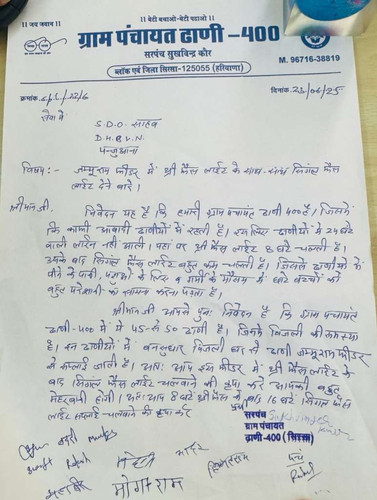 ।। जय जवान ।।
।। बेटी बचाओ-बेटी पढ़ाओ ।।
ग्राम पंचायत ढाणी -400
सरपंच सुखविन्द्र कौर
M. 96716-38819
ब्लॉक एवं जिला सिरसा-125055 (हरियाणा)
क्रमांक
दिनांक 23/06/25
सेवा में
S.D.O. साहब
D.H.B.V.N.
पन्जुआना
विषय :- जम्मूराम फीडर में थ्री फैस लाईट के साथ-साथ सिंगल फैस
लाईट देने बारे।
श्रीमान जी,
निवेदन यह है कि हमारी ग्राम पंचायत ढाणी 400 है। जिसमें
कि काफी आबादी ढाणीयों में रहती है। इस लिए ढाणीयों में 24 घंटे
वाली लाईन नहीं आती। यहां पर थ्री फैस लाईट 8 घंटे चलती है।
उसके बाद सिंगल फैस लाईट बहुत कम चलती है। जिससे ढाणीयों में
पीने के पानी, पशुओं के लिए व गर्मी के मौसम में छोटे बच्चों को
बहुत परेशानी का सामना करना पड़ता है।
श्रीमान जी आपसे पुनः निवेदन है कि ग्राम पंचायत
ढाणी-400 में 45 से 50 ढाणी है। जिनमें बिजली की समस्या
है। इन ढाणीयों में बिजली घर से ढाणी जम्मूराम फीडर
से सप्लाई जाती है। अतः आप इस फीडर में थ्री फैस लाईट के
बाद सिंगल फैस लाईट चलवाने की कृपा करें आपकी बहुत
मेहरबानी होगी। अतः आप 8 घंटे थ्री फैस व 16 घंटे सिंगल फैस
लाईट सप्लाई चलवाने की कृपा करें
सरपंच
ग्राम पंचायत
ढाणी-400 (सिरसा)
मांगेराम
पंच